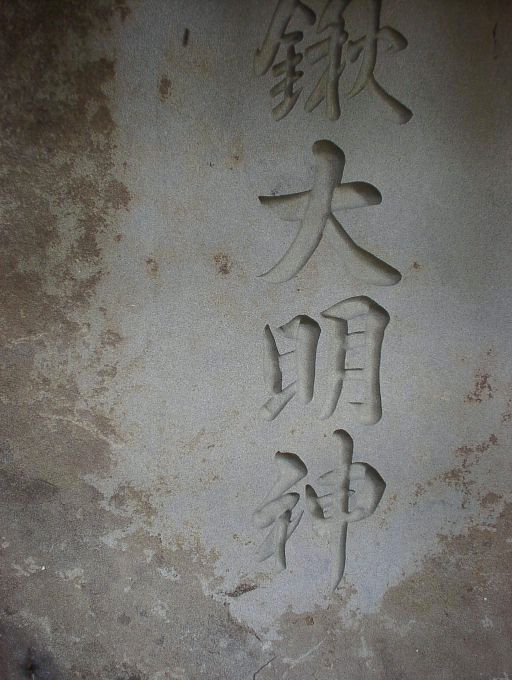 鍬大明神